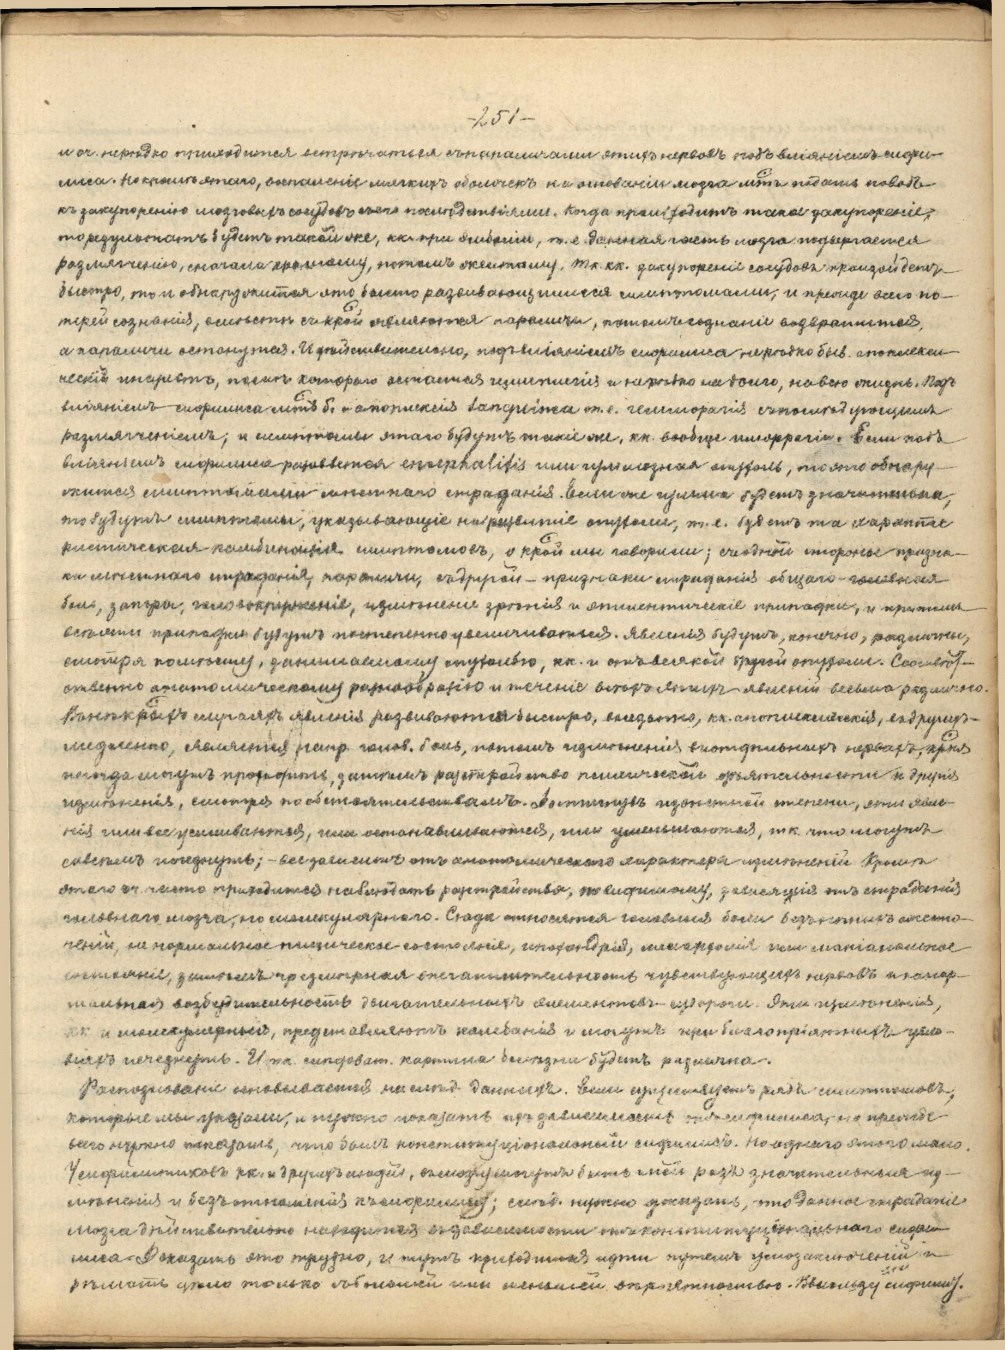 -251-
и оч. нерѣдко приходится встрѣчаться съ параличами этихъ нервовъ подъ вліяніемъ сифи-
лиса. Но кромѣ этаго, воспаленіе мягкихъ оболочекъ на основаніи мозга мтъ подать поводъ
къ закупоренію мозговыхъ сосудовъ со его послѣдствіями. Когда произойдетъ такое закупореніе,
то результатъ будетъ такой же, кк. при эмболіи, т. е. данная часть мозга подвергается
размягченію, сначала красному, потомъ желтому. Тк. кк. закупореніе сосудовъ произойдетъ
быстро, то и обнаружится это быстро развивающимися симптомами, и прежде всего по-
терей сознанія, вмѣстѣ съ крой являются параличи, потомъ сознаніе возвратится,
а параличи останутся. И дѣйствительно, подъ вліяніемъ сифилиса нерѣдко быв. апоплекси-
ческій инсультъ, послѣ котораго остаются измѣненія и нерѣдко надолго, на всю жизнь. Подъ
вліяніемъ сифилиса мтъ б. и апоплексія т. е. геммораргія съ послѣдующимъ
размягченіемъ, и симптомы этаго будутъ такіе же, кк. вообще при геморрагіи. Если подъ
вліяніемъ сифилиса разовьется encephalitis или гуммозная опухоль, то это обнару-
жится симптомами мѣстнаго страданія. Если же гумма будетъ значительна,
то будутъ симптомы, указывающіе на развитіе опухоли, т. е. будетъ та характе-
ристическая комбинація симптомовъ, о крой мы говорили; съ одной стороны призна-
ки мѣстнаго страданія, параличи, съ другой - признаки страданія общаго - головная
боль, запоры, головокруженіе, измѣненіе зрѣнія и эпилептическіе припадки, и притомъ
всѣ эти припадки будутъ постепенно увеличиваться. Явленія будутъ, конечно, различны,
смотря по мѣсту, занимаемому опухолью, кк. и отъ всякой другой опухоли. Соотвѣт-
ственно анатомическому разнообразію и теченіе всѣхъ этихъ явленій весьма различно.
Въ нѣкрыхъ случаяхъ явленія развиваются быстро, внезапно, кк. апоплексическія, въ другихъ-
медленно, являются напр. голов. боль, потомъ измѣненія въ отдѣльныхъ нервахъ, крыя
иногда могутъ проходить, затѣмъ разстройство психической дѣятельности и другія
измѣненія, смотря по обстоятельствамъ. Достигнувъ извѣстной степени, эти явле-
нія или все усиливаются, или останавливаются, или уменьшаются, тк. что могутъ
совсѣмъ исчезнуть; - все зависитъ отъ анатомическаго характера измѣненій. Кромѣ
этаго оч. часто приходится наблюдать разстройства, по видимому, зависящія отъ страданія
головнаго мозга, но молекулярнаго. Сюда относятся головныя боли безъ
не нормальное психическое состояніе, ипохондрія, меланхолія или маніакальное
состояніе, затѣмъ чрезмѣрная впечатлительность чувствующихъ нервовъ и ненор-
мальная возбудительность двигательныхъ элементовъ - судороги. Эти измѣненія,
кк. и молекулярныя, представляютъ колебанія и могутъ при благопріятныхъ усло-
віяхъ исчезнуть. И тк. слѣдоват. картина болѣзни будетъ различна.
Распознаваніе основывается на слѣд. данныхъ. Если существуетъ рядъ симптомовъ,
которые мы указали, и нужно показать ихъ зависимость отъ сифилиса, то прежде
всего нужно показать, что былъ конституціональный сифилисъ. Но однаго этого мало.
У сифилитиковъ, кк. и другихъ людей, въ мозгу могутъ быть значительныя из-
мѣненія и безъ отношенія къ сифилису; слѣд. нужно доказать, что данное страданіе
мозга дѣйствительно находится въ зависимости отъ конституціональнаго сифи-
лиса. Доказать это трудно, и тутъ приходится идти путемъ умозаключеній и
рѣшать дѣло только съ большей или меньшей вѣроятностью. Въ пользу сифилиса